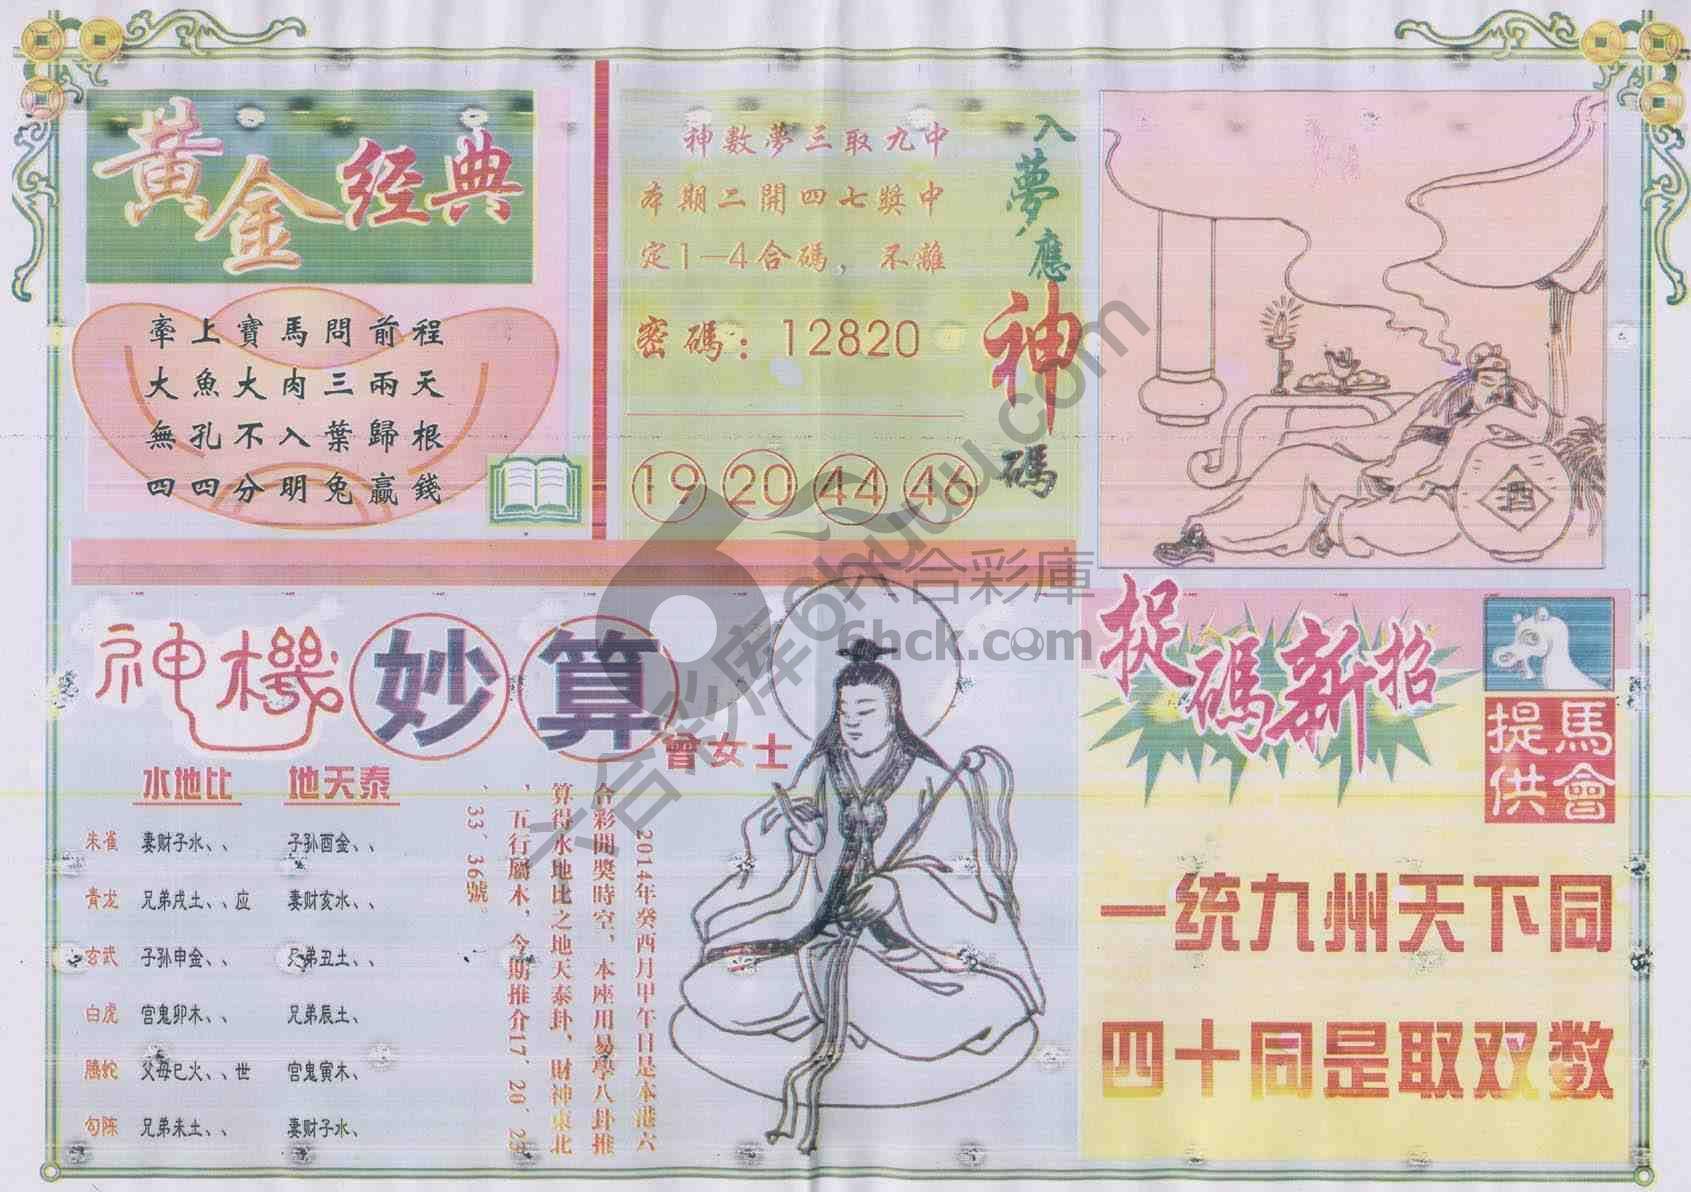 黃金经典
牽上寶馬問前程
大魚大肉三兩天
無孔不入葉歸根
四四分明兔贏錢
神數夢三取九中
本期二開四七獎中
定1—4合碼，不離
密碼：12820
19 20 44 46
入夢應神碼
酒
神機妙算
曾女士
水地比 地天泰
朱雀 妻财子水、、 子孙酉金、、
青龙 兄弟戌土、、应 妻财亥水、、
玄武 子孙申金、、 兄弟丑土、、
白虎 官鬼卯木、、 兄弟辰土、
螣蛇 父母巳火、、世 官鬼寅木、
勾陈 兄弟未土、、 妻财子水、
2014年癸酉月甲午日是本港六
合彩開獎時空，本座用易學八卦推
算得水地比之地天泰卦，財神東北
，五行屬木，今期推介17、20、23
、33、36號。
捉碼新招
馬會
提供
一统九州天下同
四十同是取双数
六合彩库 6huuu.com
六合彩庫
6hck.com